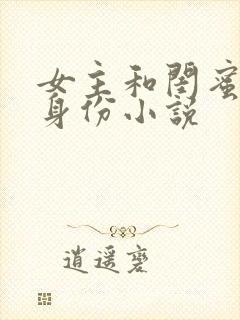 女主和闺蜜
身份小说
逍遥磨